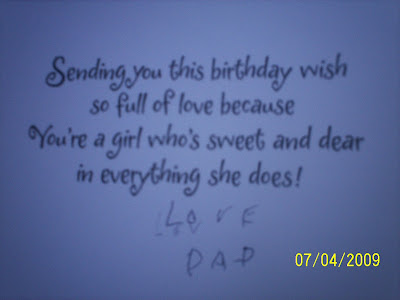 Sending you this birthday wish
so full of love because
You're a girl who's sweet and dear
in everything she does!
LOVE
DAD
07/04/2009